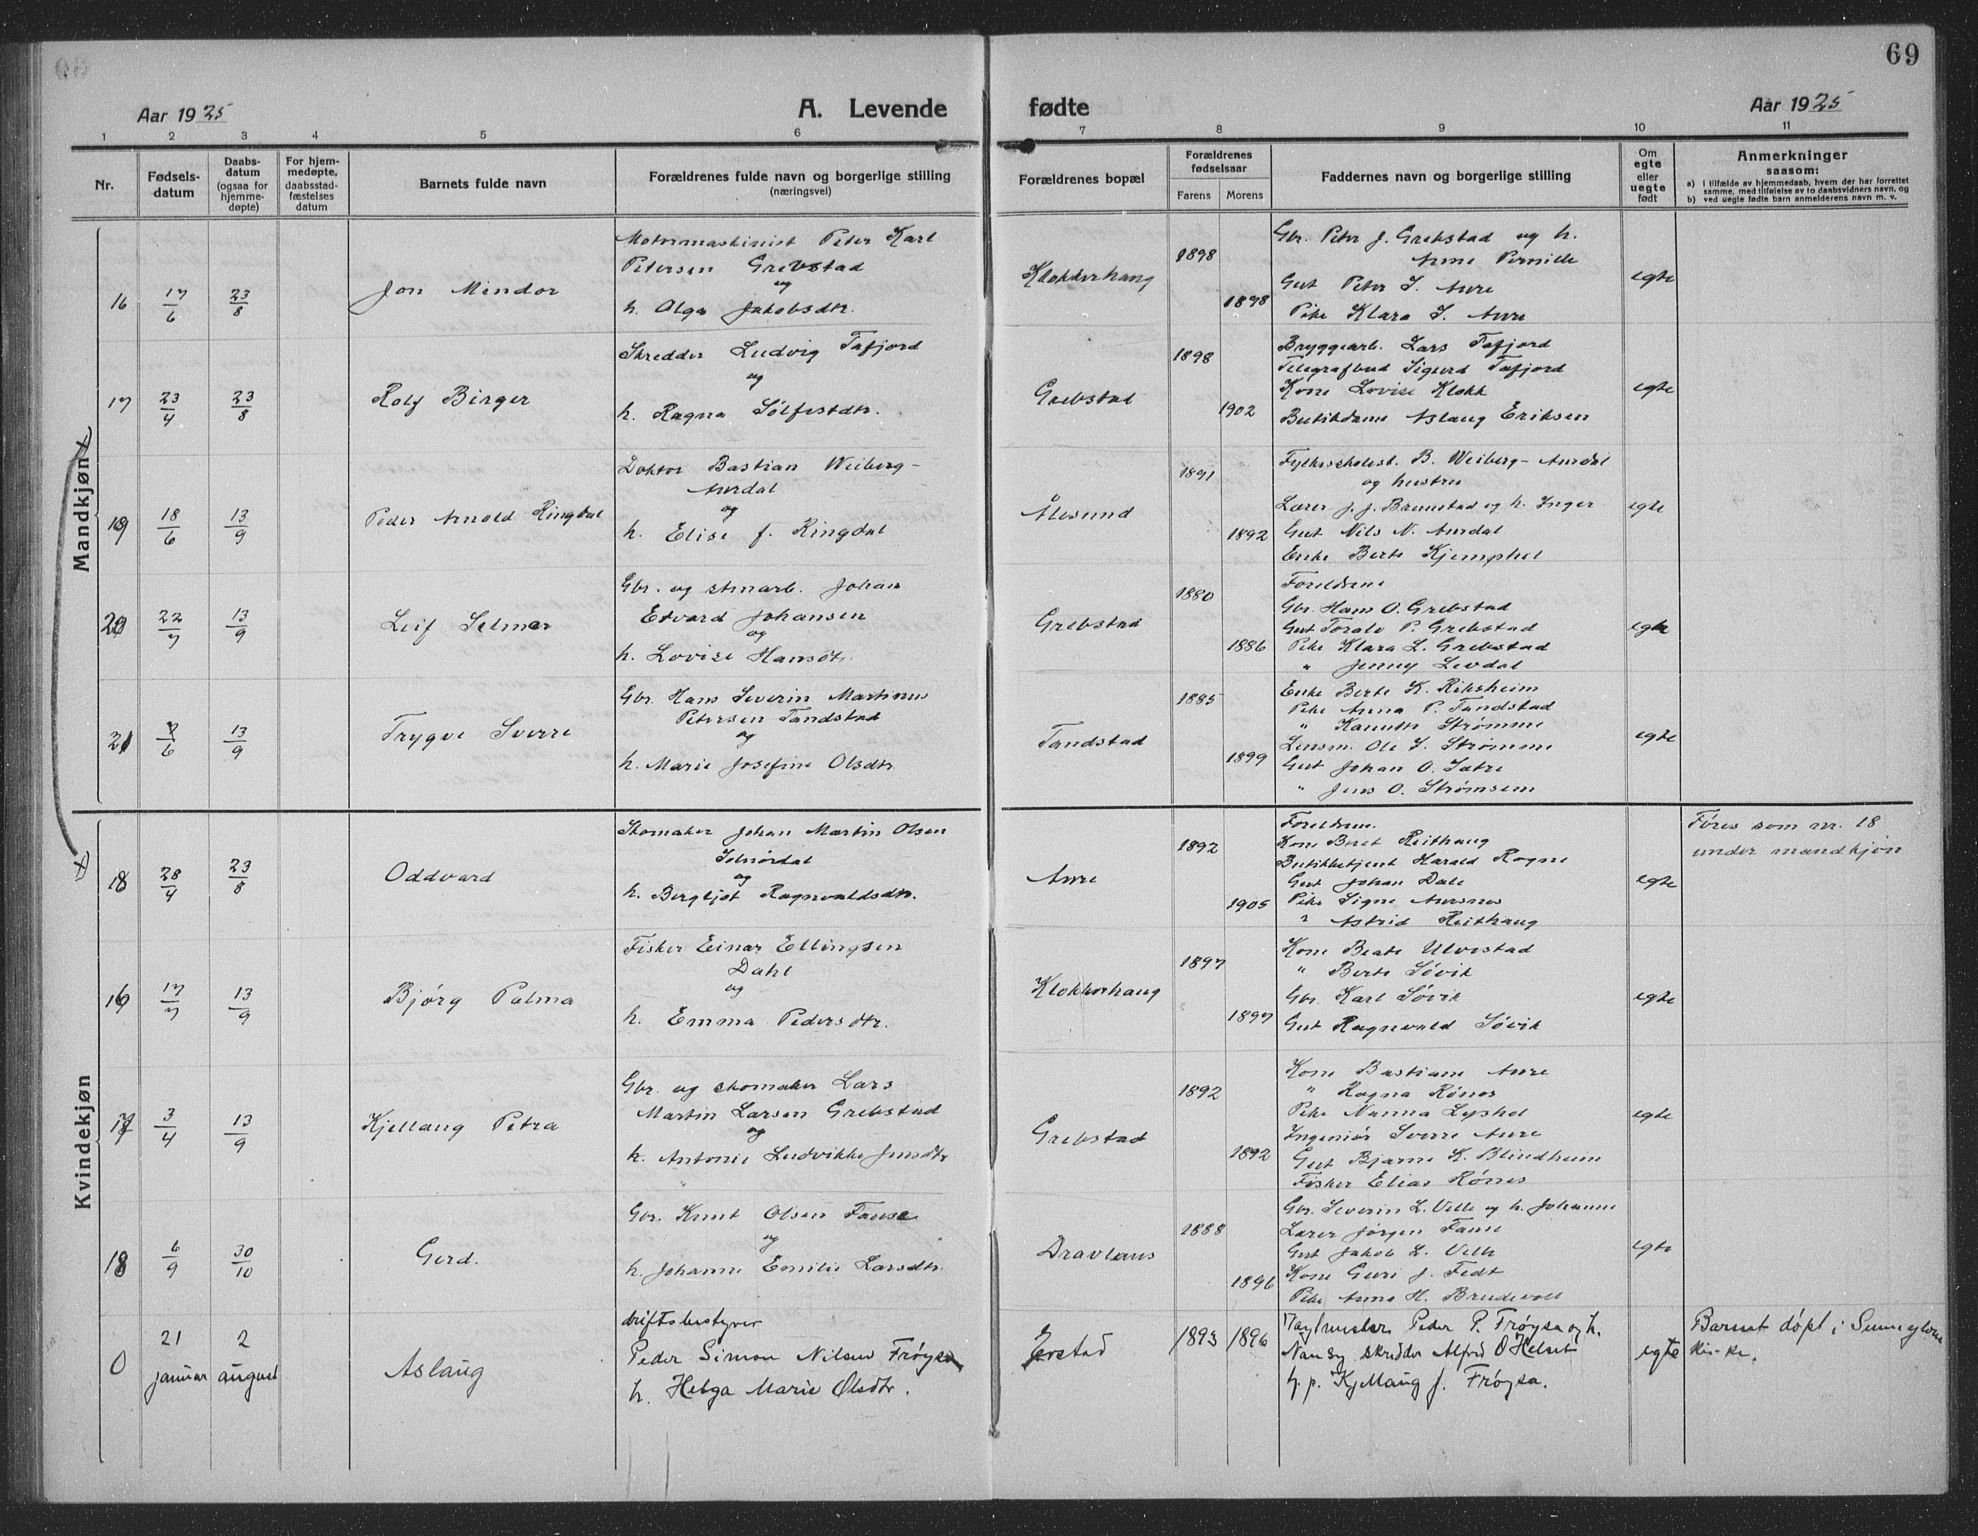 69
Aar 1925
A. Levende fødte
Aar 1925
1 2 3 4 5 6 7 8 9 10 11
Nr.
Fødsels-
datum
Daabs-
datum
(ogsaa for
hjemme-
døpte)
For hjem-
medøpte,
daabsstad-
fæstelses
datum
Barnets fulde navn
Forældrenes fulde navn og borgerlige stilling
(næringsvei)
Forældrenes bopæl
Forældrenes
fødselsaar
Farens Morens
Faddernes navn og borgerlige stilling
Om
egte
eller
uegte
født
Anmerkninger
saasom:
a) i tilfælde av hjemmedaab, hvem der har forrettet
samme, med tilføielse av to daabsvidners navn, og
b) ved uegte fødte barn anmelderens navn m. v.
Mandkjøn
16 17/6 23/8 Jon Mindor
Motormaskinist Peter Karl
Petersen Grebstad
og
h. Olga Jakobsdtr.
Klokkerhaug
1898
1898
Gbr. Peter J. Grebstad og h.
Anne Pernille
Gut Peter I. Aure
Pike Klara I. Aure
egte
17 23/4 23/8 Rolf Birger
Skredder Ludvig Tafjord
og
h. Ragna Sølfestdtr.
Grebstad
1898
1902
Bryggearb. Lars Tafjord
Telegrafbud Sigurd Tafjord
Kone Lovise Klokk
Butikdame Aslaug Eriksen
egte
19 18/6 13/9 Peder Arnold Ringdal
Doktor Bastian Weiberg-
Aurdal
og
h. Elise f. Ringdal
Ålesund
1891
1892
B. Weiberg-Aurdal
og hustru
Lærer J. J. Brunstad og h. Inger
Gut Nils N. Aurdal
Enke Berte Kjemphol
egte
20 22/7 13/9 Leif Selmer
Gbr. og stmarb. Johan
Edvard Johansen
og
h. Lovise Hansdtr.
Grebstad
1880
1886
Foreldrene
Gbr. Hans O. Grebstad
Gut Toralv P. Grebstad
Pike Klara L. Grebstad
" Jenny Levdal
egte
21 13/9 Trygve Sverre
Gbr. Hans Severin Martinus
Petersen Tandstad
og
h. Marie Josefine Olsdtr.
Tandstad
1885
1899
Enke Berte K. Riksheim
Pike Anna P. Tandstad
" Strømme
Lensm. Ole I. Strømme
Gut Johan O. Sætre
" Jens O. Strømsem
egte
Kvindekjøn
18 28/4 23/8 Oddvard
Skomaker Johan Martin Olsen
og
h. Bergljot Ragnvaldsdtr.
Aure
1892
1905
Foreldrene.
Kone Beret Reithaug
Butikbetjent Harald Rogne
Gut Johan Dale
Pike Signe Aursnes
" Astrid Reithaug
egte
Føres som nr. 18
under mandkjøn
16 17/7 13/9 Bjørg Palma
Fisker Einar Ellingsen
Dahl
og
h. Emma Pedersdtr.
Klokkerhaug
1897
1897
Kone Beate Ulvestad
" Berte Søvik
Gbr. Karl Søvik
Gut Ragnvald Søvik
egte
17 3/4 13/9 Kjellaug Petra
Gbr. og skomaker Lars
Martin Larsen Grebstad
og
h. Antonie Ludvikke Jensdtr.
Grebstad
1892
1892
Kone Bastiane Aure
" Ragna Rønes
Pike Nanna Lyshol
Ingeniør Sverre Aure
Gut Bjarne K. Blindheim
Fisker Elias Rønes
egte
18 6/9 30/10 Gerd.
Gbr. Knut Olsen Fause
og
h. Johanne Emilie Larsdtr.
Dravlaus
1888
1896
Gbr. Severin L. Velle og h. Johanne
Lærer Jørgen
Gut Jakob L. Velle
Kone Guri J. Fedt
Pike Anna H. Brudevoll
egte
0 21 januar 2 august Aslaug
driftsbestyrer
Peder Simon Nilsen Frøysa
h. Helga Marie Olsdtr.
1893 1896
Peder P. Frøysa og h.
Nansy, skredder Alfred O Helset
h. p. Kjellaug J. Frøysa.
egte
Barnet døpt i Sunnylven
kirke.